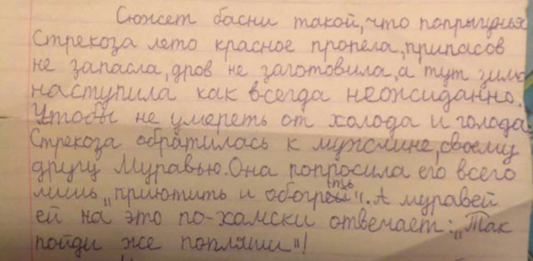 Сюжет басни такой, что попрыгунья
Стрекоза лето красное пропела, припасов
не запасла, дров не заготовила, а тут зима
наступила как всегда неожиданно.
Чтобы не умереть от холода и голода
Стрекоза обратилась к мужчине, своему
другу Муравью. Она попросила его всего
лишь „приютить и обогреть". А муравей
ей на это по-хамски отвечает: „Так
пойди же попляши"!